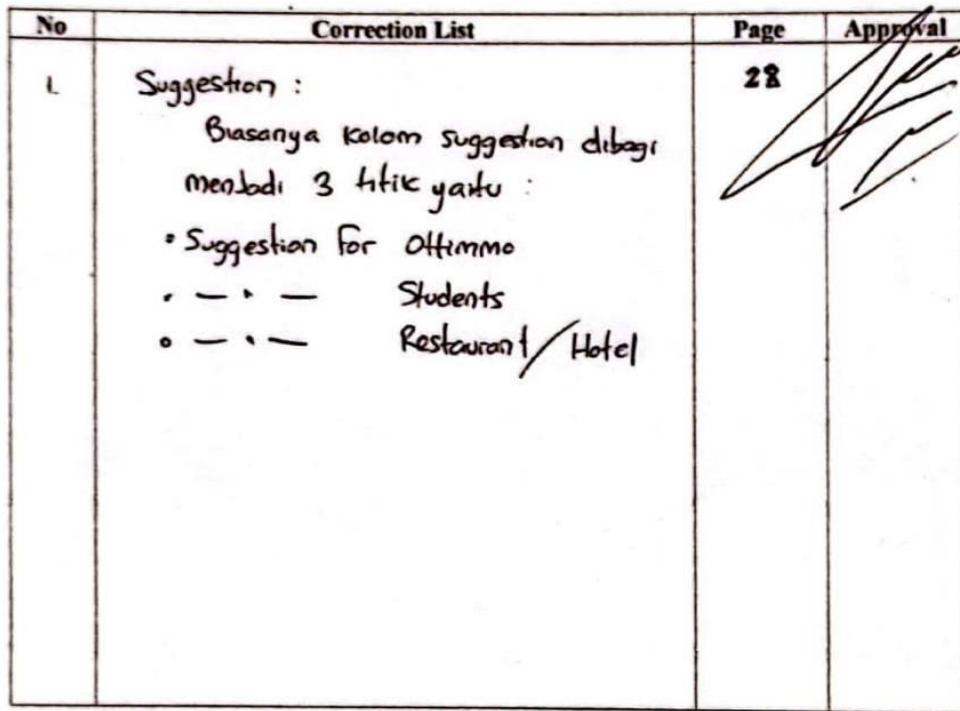 No Correction List Page Approval
1. Suggestion : 28
Biasanya kolom suggestion dibagi
menjadi 3 titik yaitu :
• Suggestion For Ottimmo
• — • — Students
• — • — Restaurant / Hotel